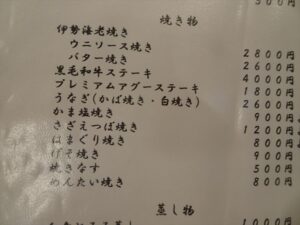 500円
焼き物
伊勢海老焼き
ウニソース焼き 2800円
バター焼き 2600円
黒毛和牛ステーキ 4000円
プレミアムアグーステーキ 1800円
うなぎ(かば焼き・白焼き) 2600円
かま塩焼き 900円
さざえつぼ焼き 1200円
はまぐり焼き 800円
げそ焼き 900円
焼きなす 500円
めんたい焼き 800円
蒸し物
1000円